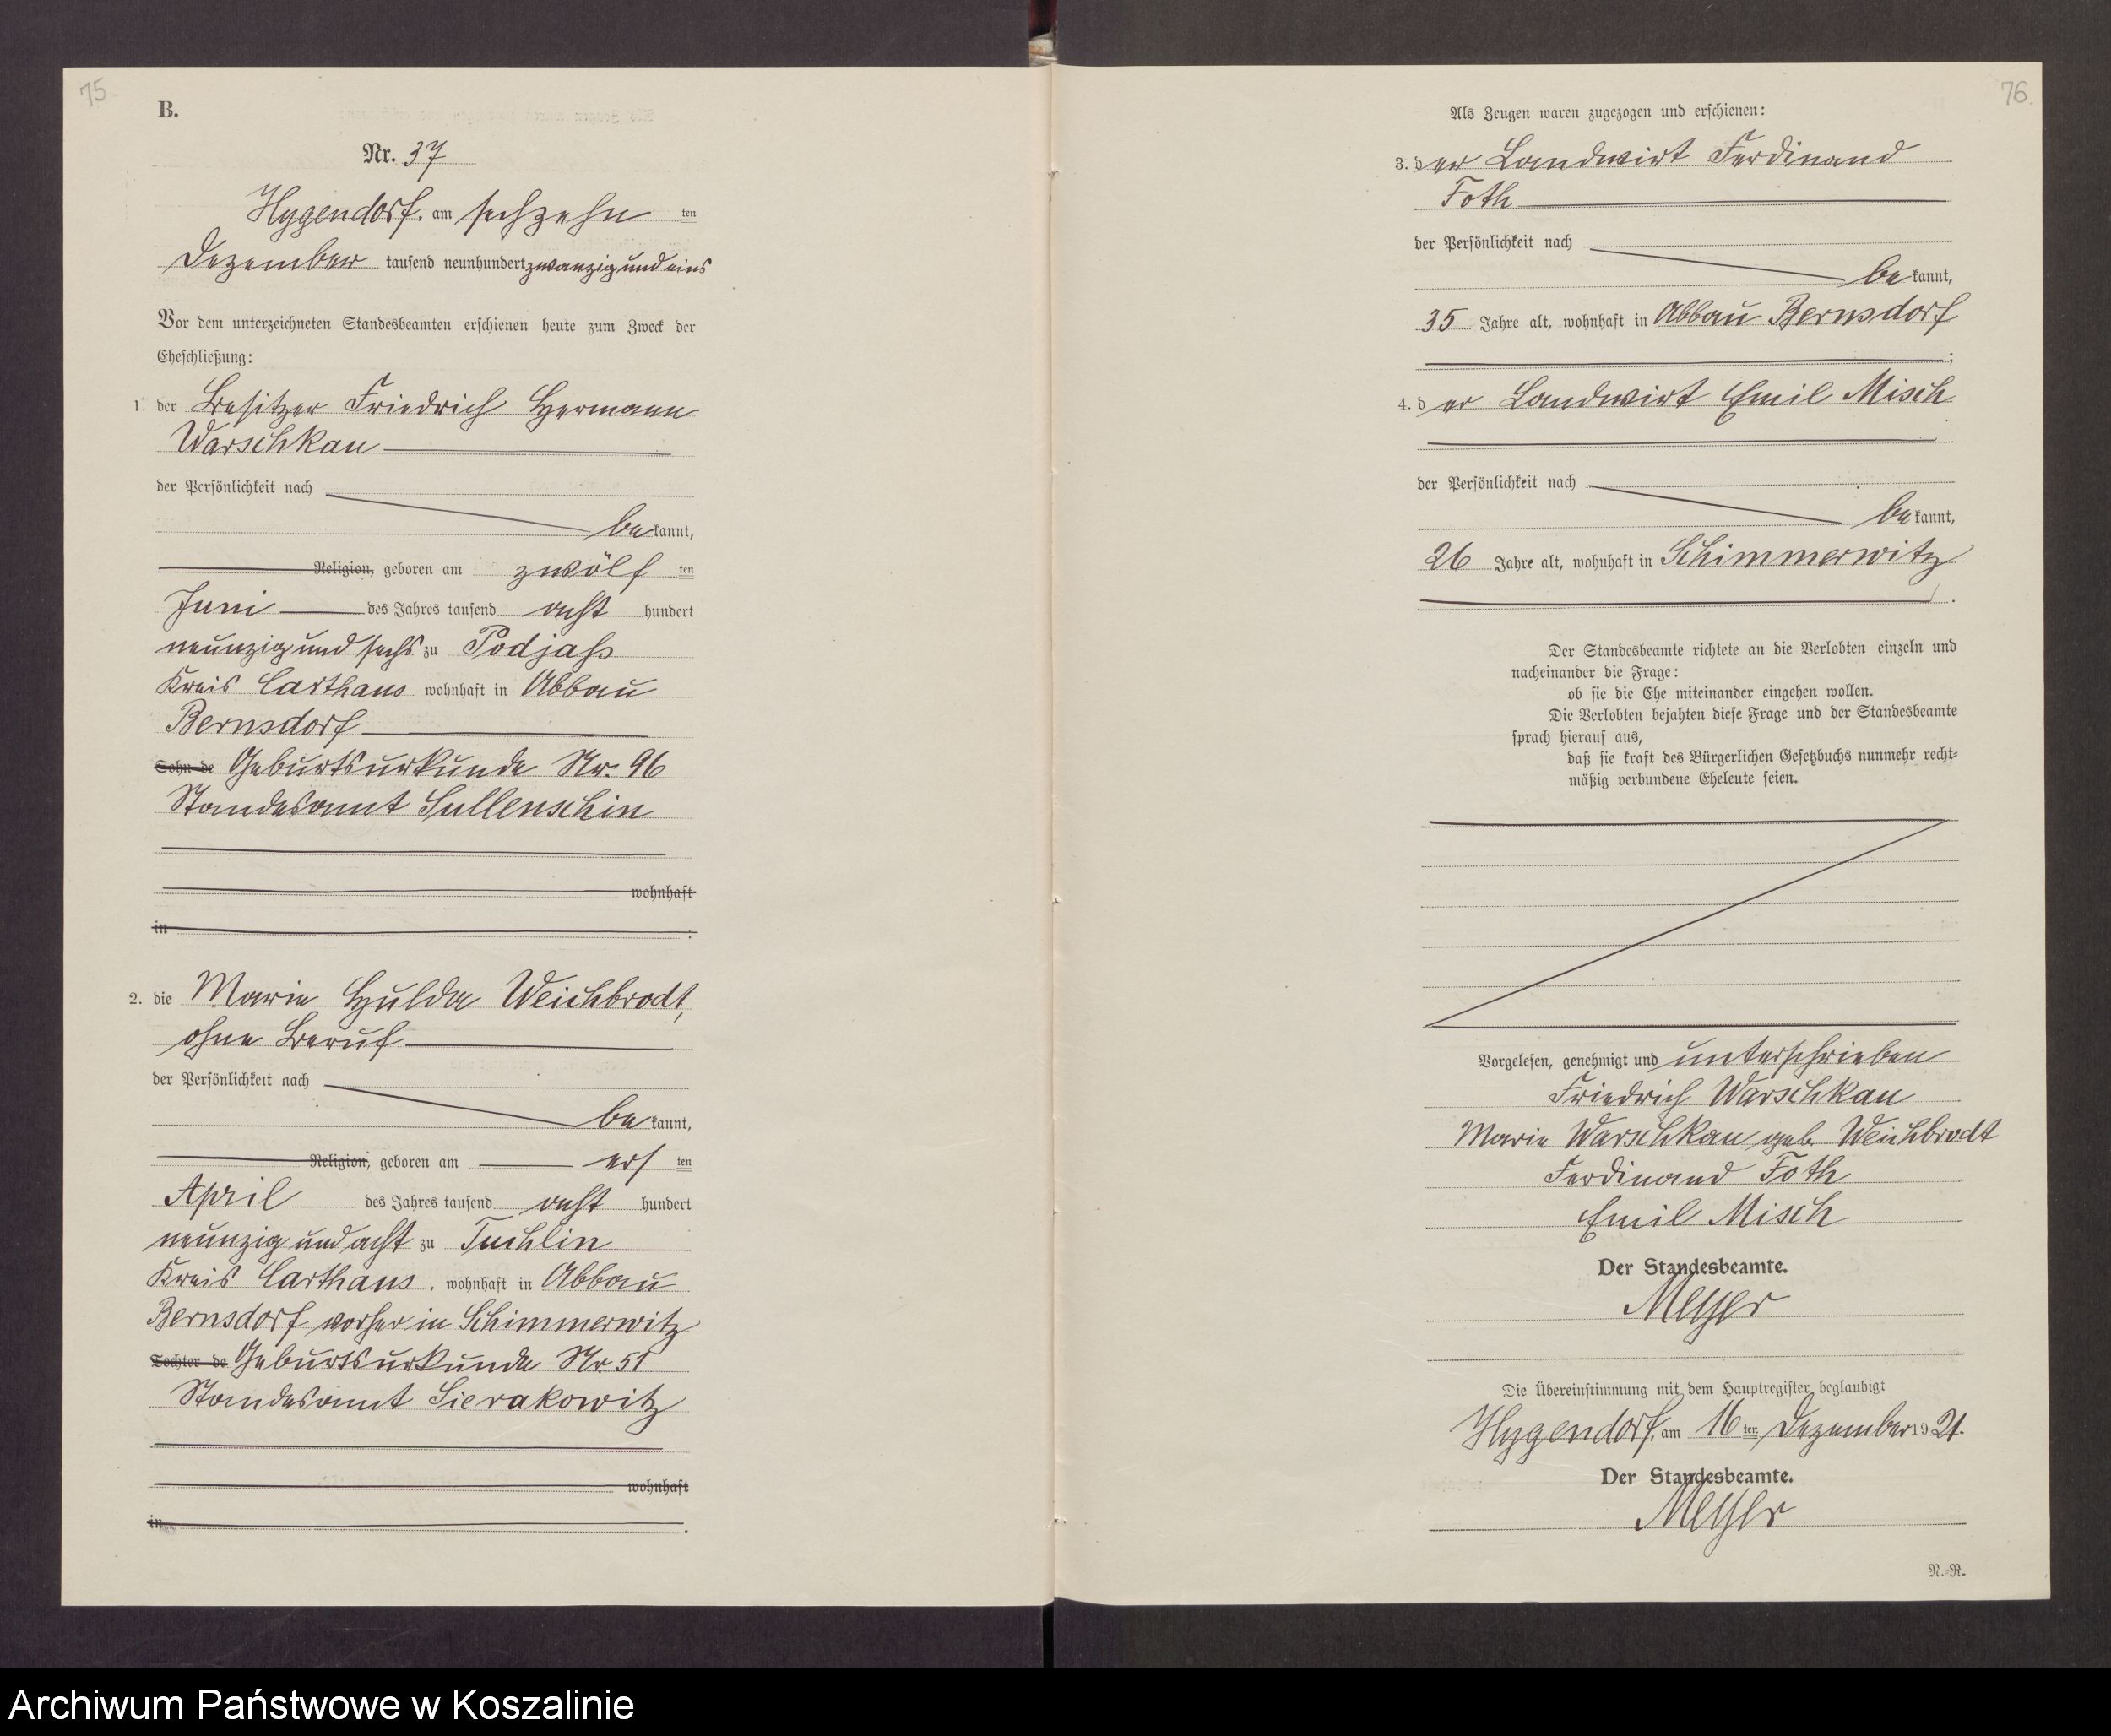 75.
B.
Nr. 37
Hygendorf. am sechzehn ten
Dezember tausend neunhundert zwanzig und eins
Vor dem unterzeichneten Standesbeamten erschienen heute zum Zweck der
Eheschließung:
1. der Besitzer Friedrich Hermann
Warschkau
der Persönlichkeit nach
be kannt,
Religion, geboren am zwölf ten
Juni des Jahres tausend acht hundert
neunzig und sechs zu Podjaß
Kreis Carthaus wohnhaft in Abbau
Bernsdorf
Sohn de Geburtsurkunde Nr. 96
Standesamt Sullenschin
wohnhaft
in .
2. die Marie Hulda Weichbrodt,
ohne Beruf
der Persönlichkeit nach
be kannt,
Religion, geboren am ers ten
April des Jahres tausend acht hundert
neunzig und acht zu Tuchlin
Kreis Carthaus, wohnhaft in Abbau
Bernsdorf vorher in Schimmerwitz
Tochter de Geburtsurkunde Nr. 51
Standesamt Sierakowitz
wohnhaft
in .
76.
Als Zeugen waren zugezogen und erschienen:
3. der Landwirt Ferdinand
Foth
der Persönlichkeit nach
be kannt,
35 Jahre alt, wohnhaft in Abbau Bernsdorf
;
4. der Landwirt Emil Misch
der Persönlichkeit nach
be kannt,
26 Jahre alt, wohnhaft in Schimmerwitz
.
Der Standesbeamte richtete an die Verlobten einzeln und
nacheinander die Frage:
ob sie die Ehe miteinander eingehen wollen.
Die Verlobten bejahten diese Frage und der Standesbeamte
sprach hierauf aus,
daß sie kraft des Bürgerlichen Gesetzbuchs nunmehr recht-
mäßig verbundene Eheleute seien.
Vorgelesen, genehmigt und unterschrieben
Friedrich Warschkau
Marie Warschkau geb. Weichbrodt
Ferdinand Foth
Emil Misch
Der Standesbeamte.
Meyer
Die Übereinstimmung mit dem Hauptregister beglaubigt
Hygendorf, am 16 ten Dezember 1921.
Der Standesbeamte.
Meyer
N.-R.
Archiwum Państwowe w Koszalinie